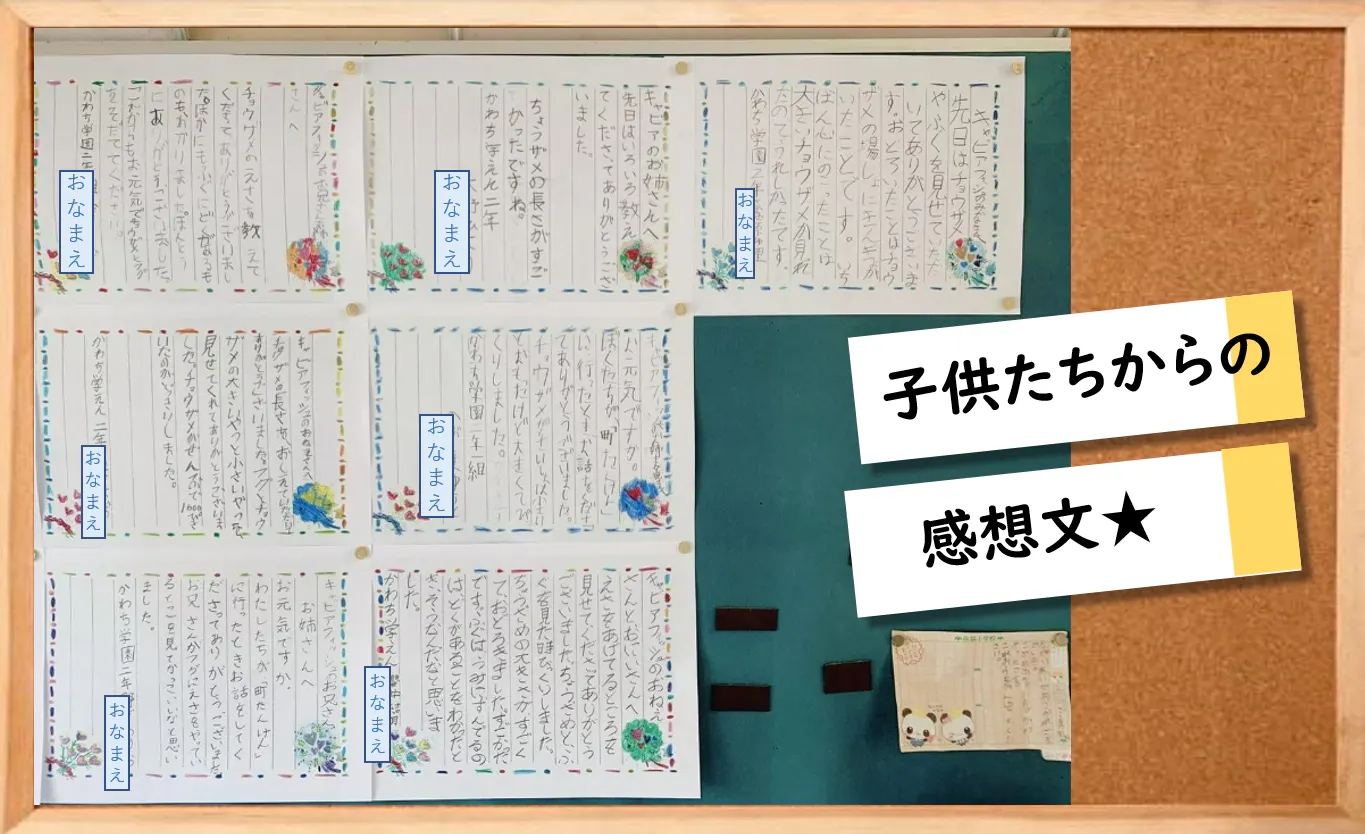 子供たちからの
感想文★
キャビアフィッシュのみなさんへ
先日はチョウザメ
やふぐを見せていただ
いてありがとうございま
す。おどろいたことはチョウ
ザメの場しょにきんぎょが
いたことです。いち
ばん心にのこったことは
大きいチョウザメが見れ
たのでうれしかったです。
かわち学園二年
おなまえ
キャビアのお姉さんへ
先日はいろいろ教え
てくださってありがとうござ
いました。
ちょうザメの長さがすご
かったですね。
かわち学えん二年
おなまえ
キャビアフィッシュのお兄さんお姉
さんへ
チョウザメのえさを教えて
くださってありがとうございまし
た。ほかにもふぐにどくがあるも
のもわかりました。ほんとう
にありがとうございました。
これからもお元気でちょうざめとふぐ
をそだててください。
かわち学園二年
おなまえ
キャビアフィッシュのお姉さんへ
お元気ですか。
ぼくたちが「町たんけん」
に行ったときお話をくださっ
てありがとうございました。
チョウザメがさいしょは小さい
とおもったけど大きくてびっ
くりしました。
かわち学園二年一組
おなまえ
キャビアフィッシュのおねえさんへ
チョウザメの長さを、おしえていただき
ありがとうございました。フグとチョウ
ザメの大きいやつと小さいやつを
見せてくれてありがとうございま
した。チョウザメがぜんぶで1000びき
いたのがびっくりしました。
かわち学えん二年
おなまえ
キャビアフィッシュのおねえ
さんとおにいさんへ、
えさをあげてるところを
見せてくださってありがとう
ございました。ちょうざめとふ
ぐを見た時びっくりしました。
ちょうざめの大きさがすごく
て、おどろきました。すごかった
です。ふぐはうみにすんでるの
は、どくがあることをわかったと
き、そうなんだなと思いま
した。
かわち学えん
おなまえ
キャビアフィッシュのお兄さん
お姉さんへ
お元気ですか。
わたしたちが「町たんけん」
に行ったときお話をしてく
ださってありがとうございました。
お兄さんがフグにえさをやってい
るとこを見てかっこいいなと思い
ました。
かわち学園二年
おなまえ